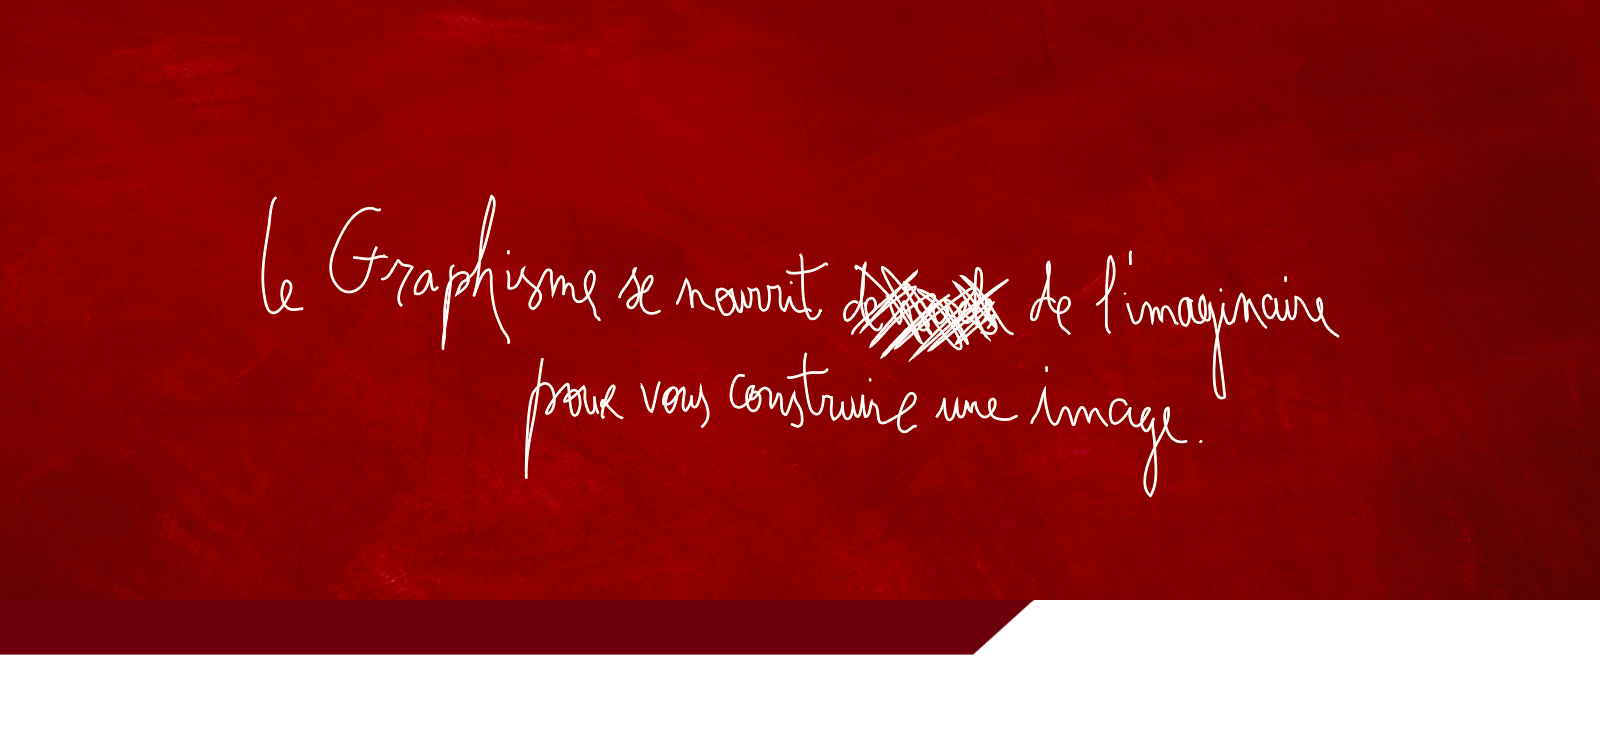 Le Graphisme se nourrit de l'imaginaire
pour vous construire une image.